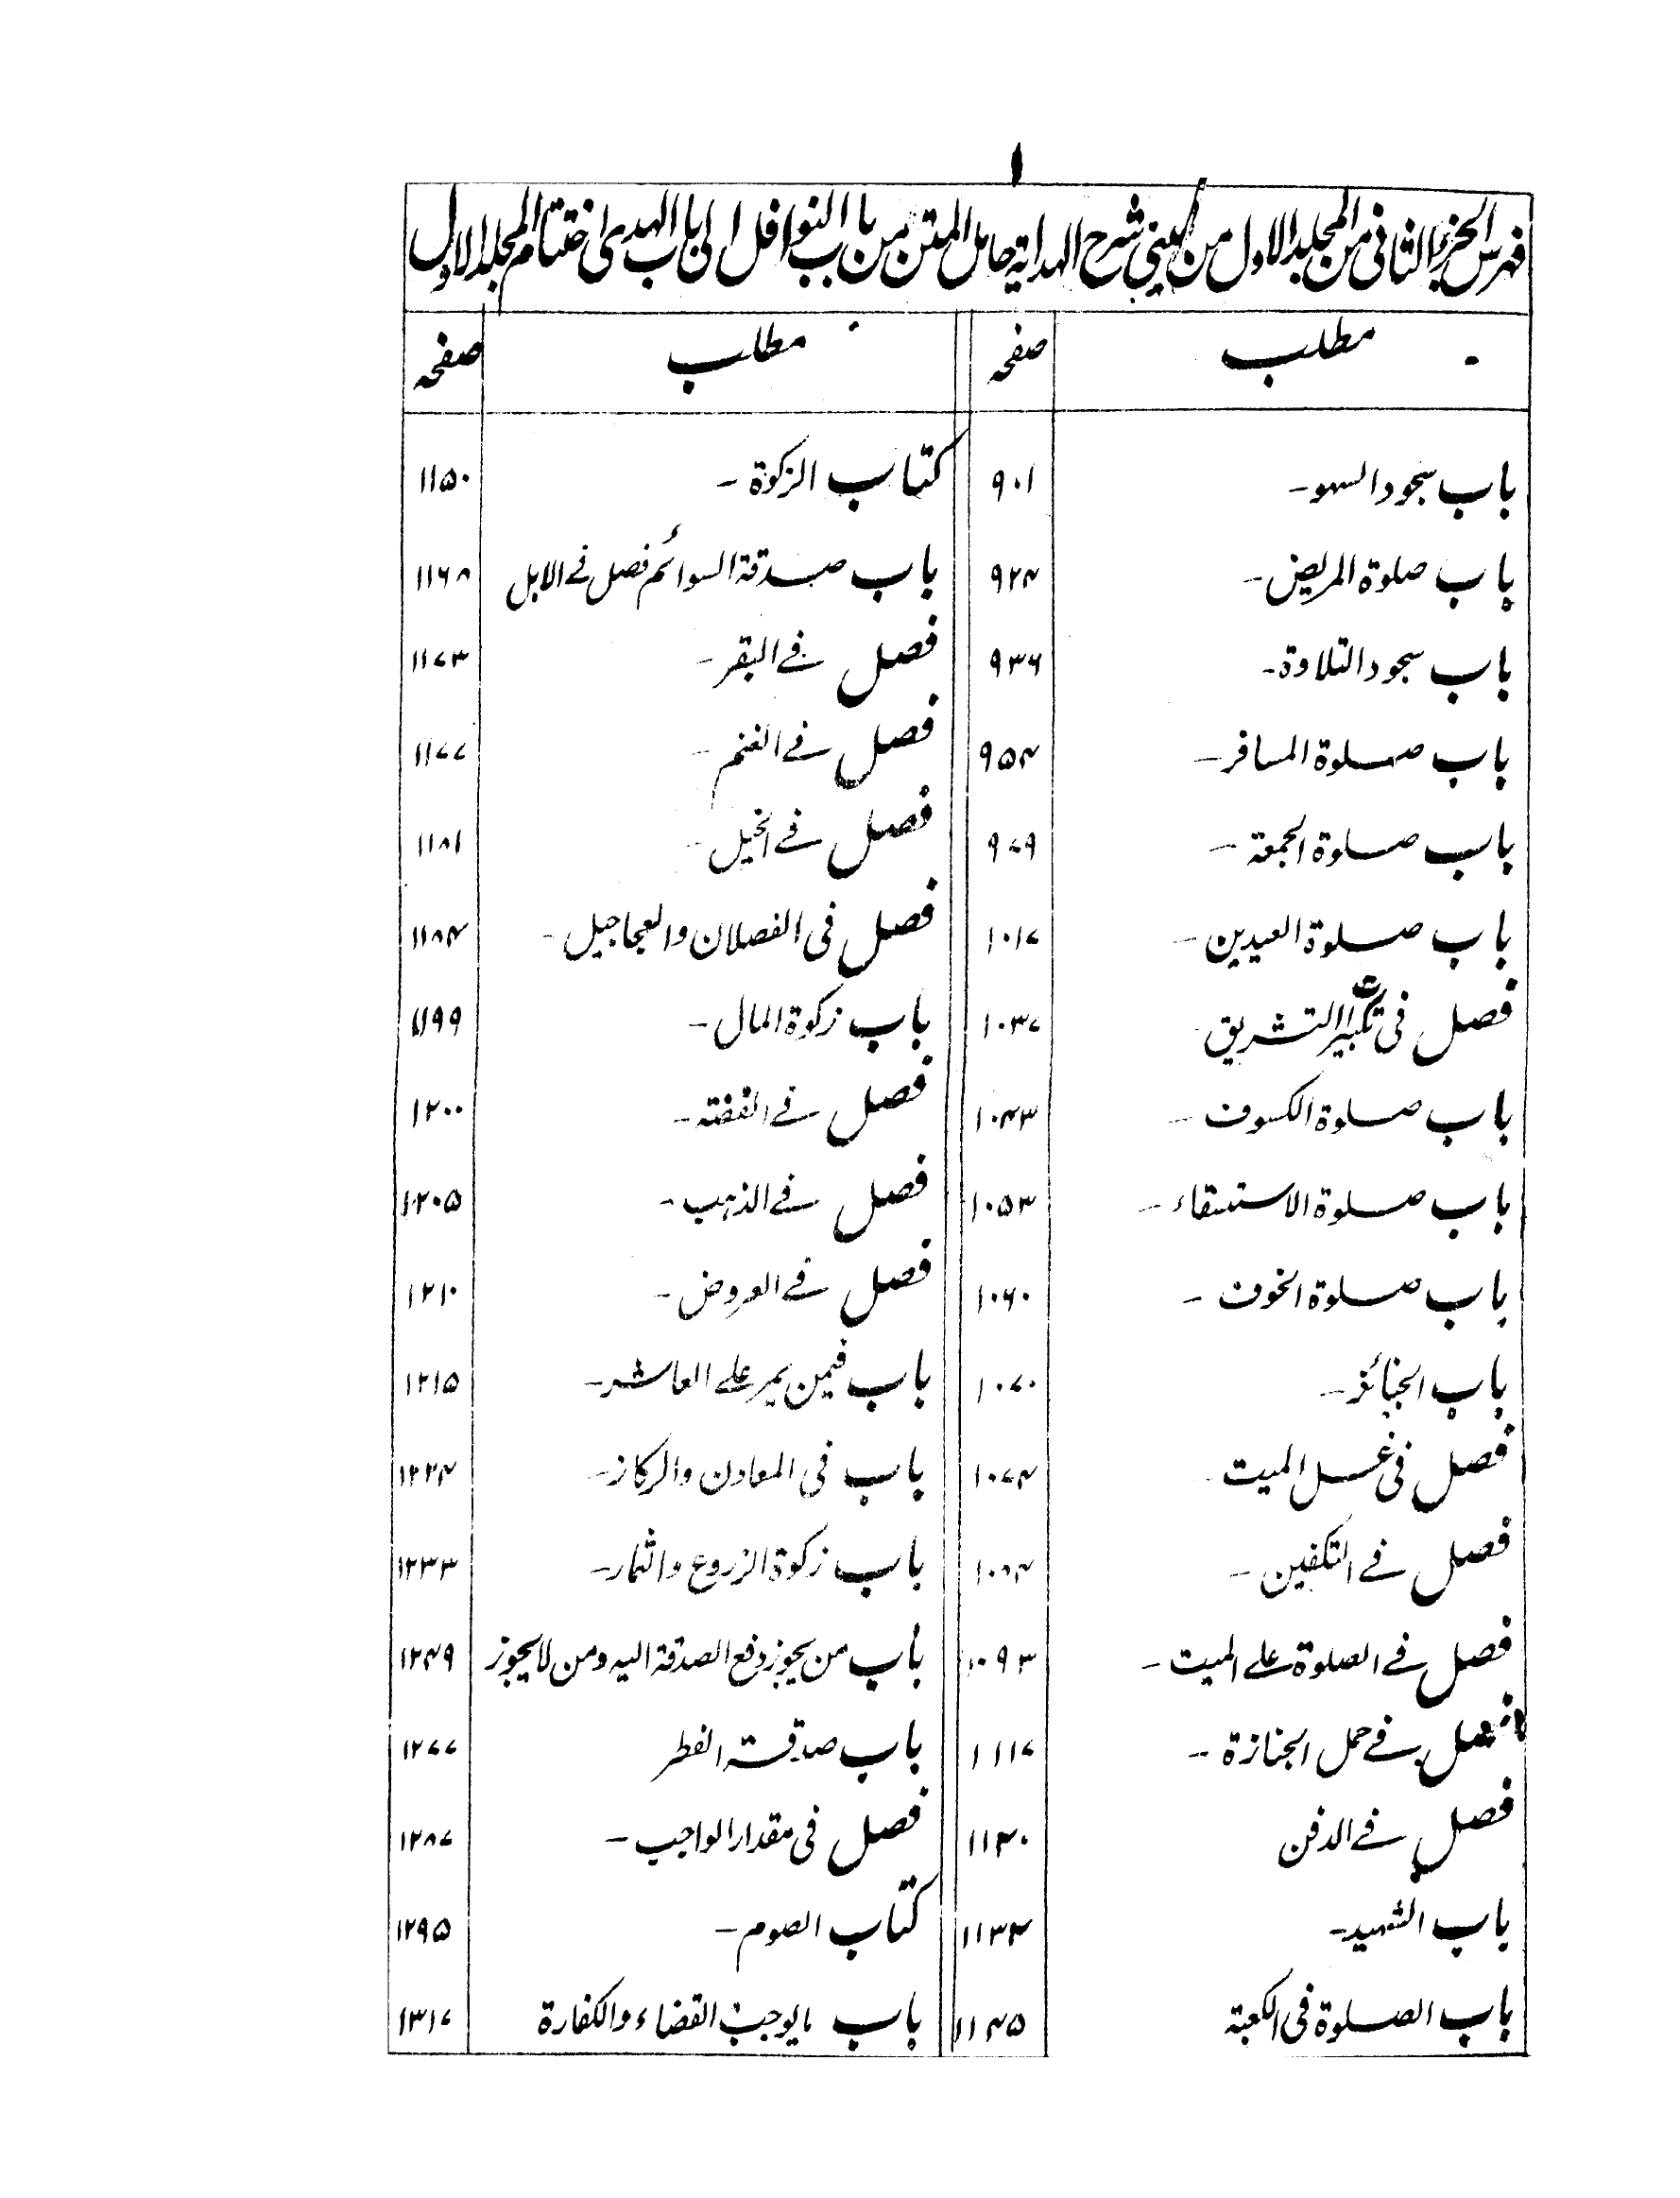 ١
فهرس الجزء الثاني من المجلد الاول من العيني شرح الهداية حامل المتن من باب النوافل الى باب الهدى اختتام المجلد الاول
مطلب صفحه مطالب صفحه
باب سجود السهو - ۹۰۱ كتاب الزكوة - ۱۱۵۰
باب صلوة المريض - ۹۲۴ باب صدقة السوائم فصل فے الابل ۱۱۶۸
باب سجود التلاوة - ۹۳۶ فصل فے البقر - ۱۱۷۳
باب صلوة المسافر - ۹۵۴ فصل فے الغنم - ۱۱۷۷
باب صلوة الجمعة - ۹۷۹ فصل فے الخيل - ۱۱۸۱
باب صلوة العيدين - ۱۰۱۷ فصل فى الفصلان والعجاجيل - ۱۱۸۴
فصل فى تكبيرات التشريق - ۱۰۳۷ باب زكوة المال - ۱۱۹۹
باب صلوة الكسوف - ۱۰۴۳ فصل فے الفضة - ۱۲۰۰
باب صلوة الاستسقاء - ۱۰۵۳ فصل فے الذہب - ۱۲۰۵
باب صلوة الخوف - ۱۰۶۰ فصل فے العروض - ۱۲۱۰
باب الجنائز - ۱۰۷۰ باب فيمن يمر علے العاشر - ۱۲۱۵
فصل فى غسل الميت - ۱۰۷۴ باب فى المعادن والركاز - ۱۲۲۴
فصل فے التكفين - ۱۰۸۴ باب زكوة الزروع والثمار - ۱۲۳۳
فصل فے الصلوة علے الميت - ۱۰۹۳ باب من يجوز دفع الصدقة اليه ومن لا يجوز ۱۲۴۹
فصل فے حمل الجنازة - ۱۱۱۷ باب صدقة الفطر ۱۲۷۷
فصل فے الدفن ۱۱۲۰ فصل فى مقدار الواجب - ۱۲۸۷
باب الشهيد - ۱۱۳۴ كتاب الصوم - ۱۲۹۵
باب الصلوة فى الكعبة ۱۱۴۵ باب ما يوجب القضاء والكفارة ۱۳۱۷